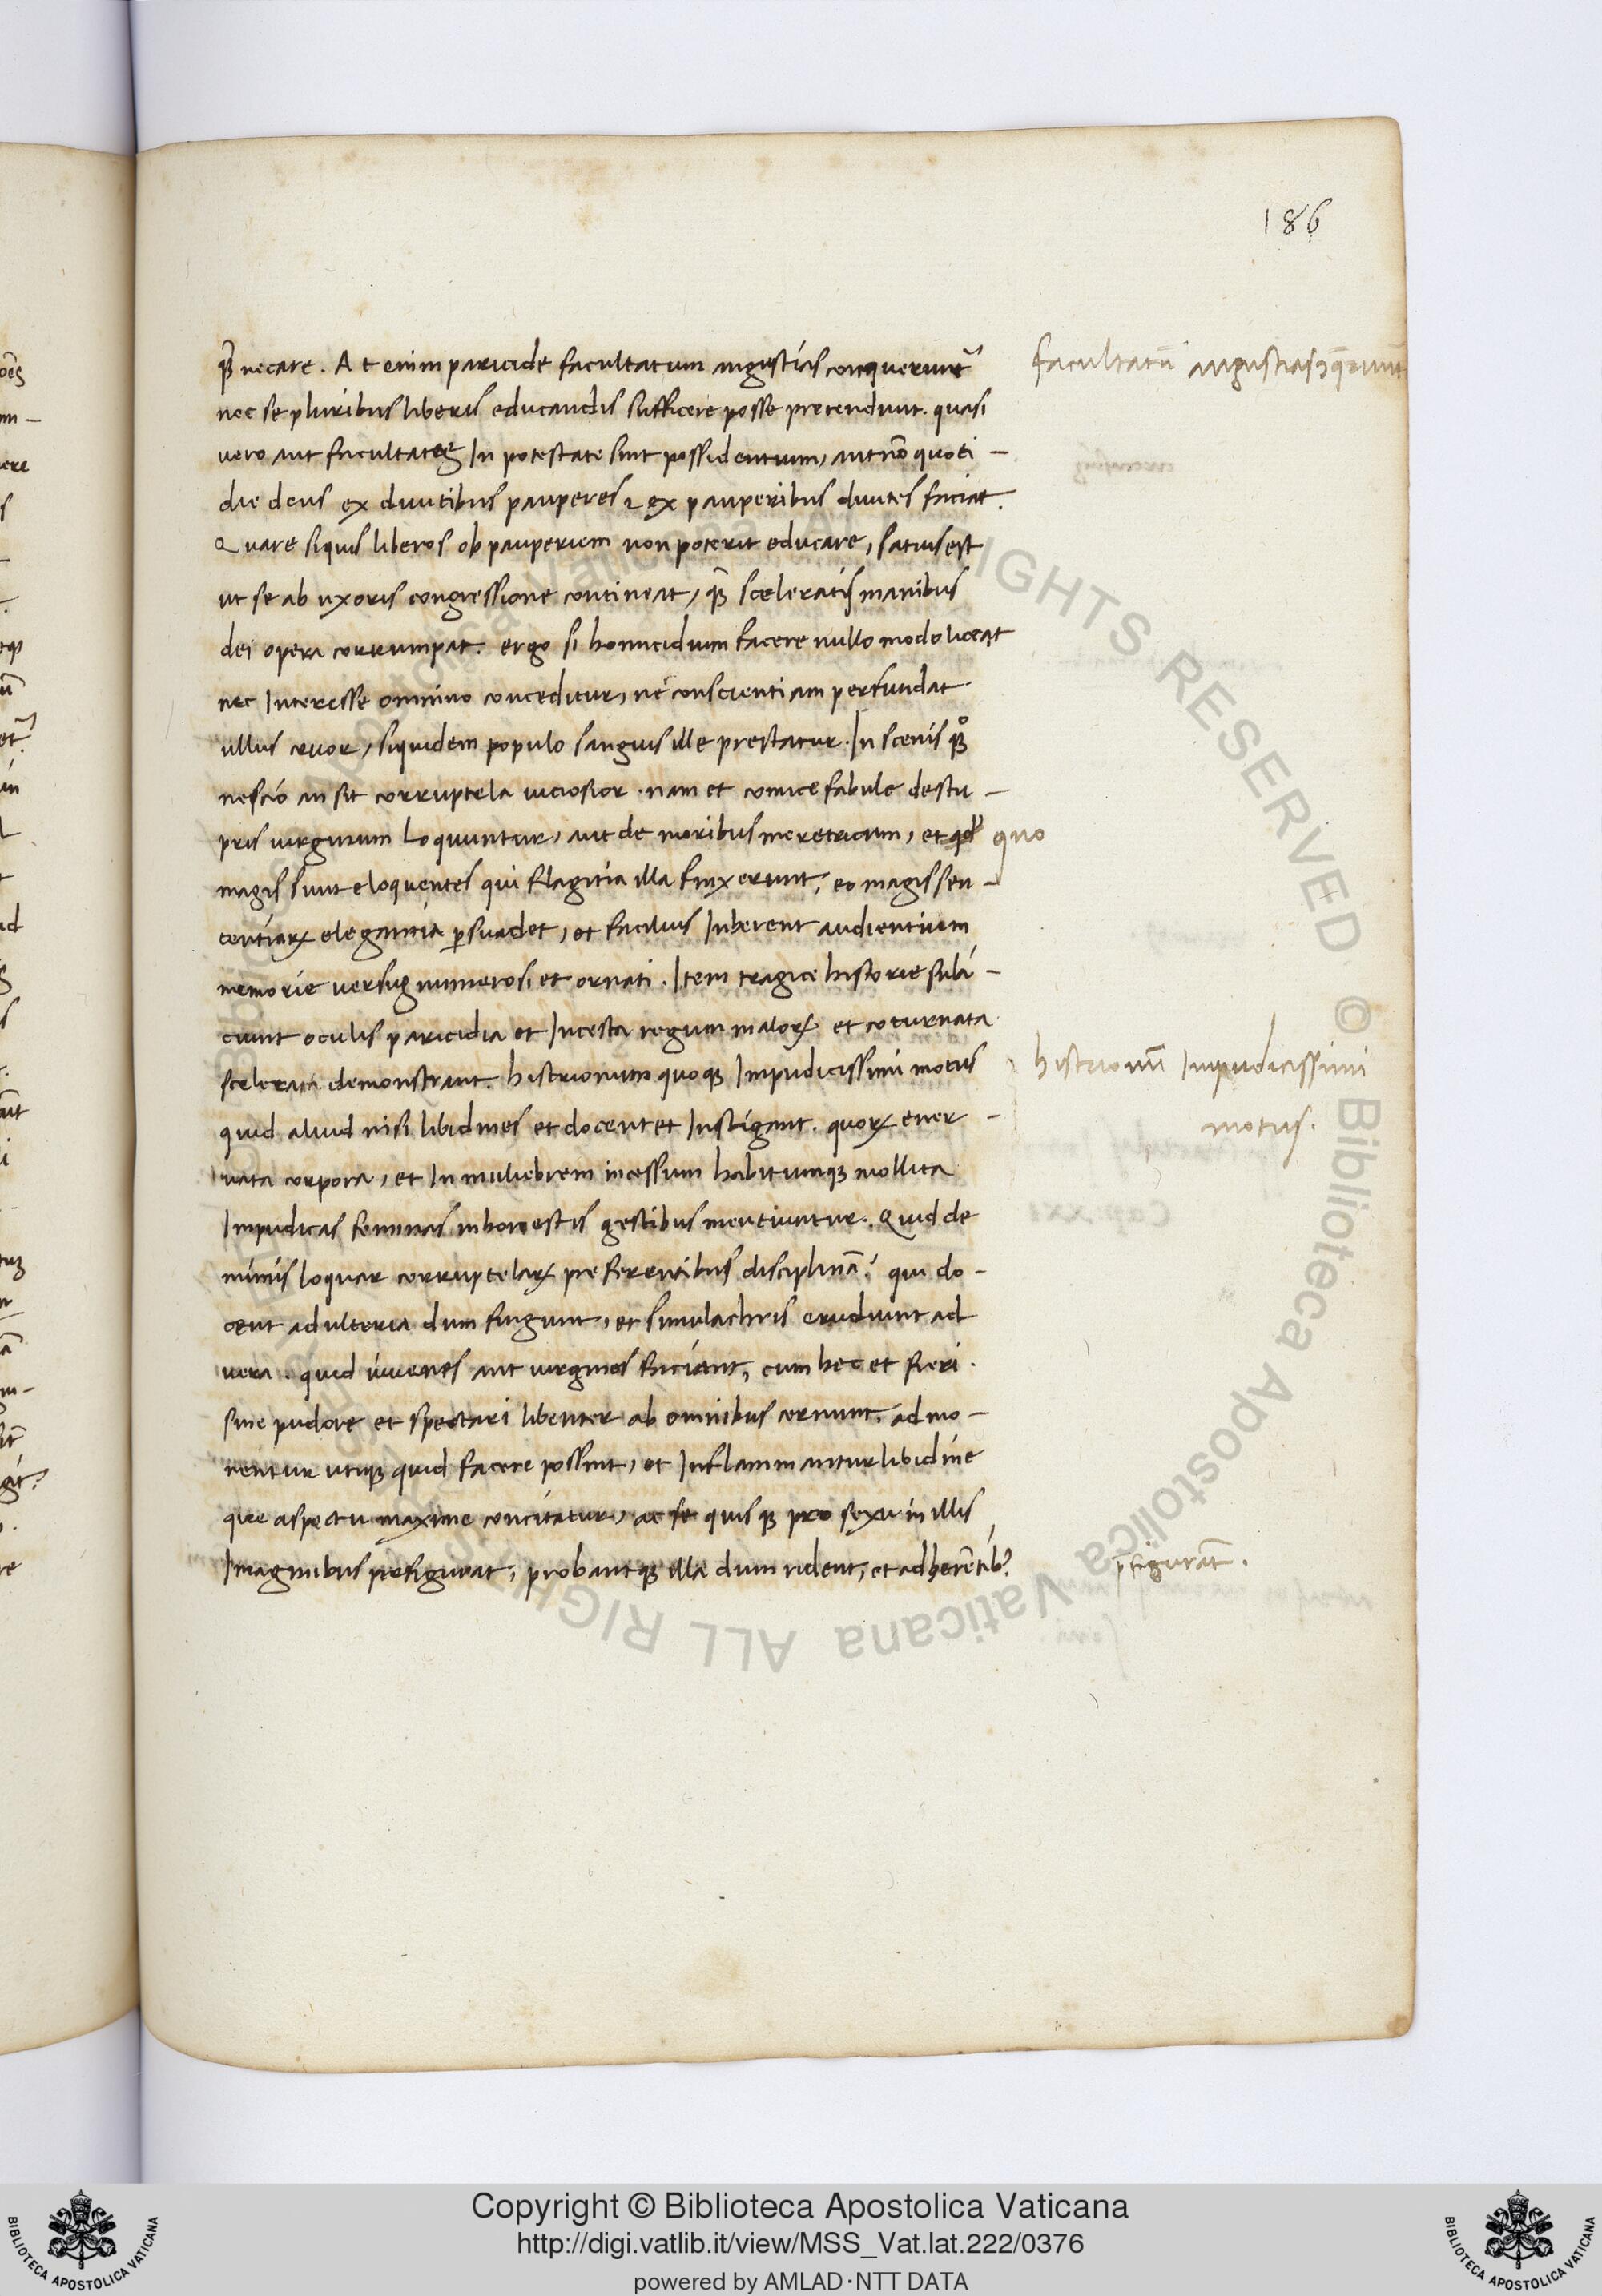 186
qᷓ necare. At enim paricide facultatum angustias conquerunt᷑
nec se pluribus liberis educandis sufficere posse pretendunt. quasi
vero aut facultates In potestate sint possidentium, aut nō quoti-
die deus ex divitibus pauperes & ex pauperibus divites faciat.
Quare siquis liberos ob pauperiem non poterit educare, satius est
ut se ab uxoris congressione contineat, qᷓ sceleratis manibus
dei opera corrumpat. ergo si homicidium facere nullo modo liceat
nec Interesse omnino conceditur, ne conscientiam perfundat
ullus cruor, siquidem populo sanguis ille prestatur. In scenis qꝫ
nescio an sit corruptela viciosior. nam et comice fabule de stu-
pris virginum loquuntur, aut de moribus meretricum, et quo
magis sunt eloquentes qui flagitia illa finxerunt, eo magis sen-
tentiaꝝ elegantia ꝑsuadet, et facilius Inherent audientium
memorie versus numerosi et ornati. Item tragice historie subi-
ciunt oculis paricidia et Incesta regum maloꝝ et coturnata
scelera demonstrant. histrionum quoqꝫ Impudicissimi motus
quid aliud nisi libidines et docent et Instigant. quoꝝ ener-
vata corpora, et In muliebrem incessum habitumqꝫ mollita
Impudicas feminas inhonestis gestibus mentiuntur. Quid de
mimis loquar corruptelaꝝ preferentibus disciplinā? qui do-
cent adulteria dum fingunt, et simulachris erudiunt ad
vera. quid iuvenes aut virgines faciant, cum hec et fieri
sine pudore et spectari libenter ab omnibus cernunt, admo-
nentur utiqꝫ quid facere possint, et Inflammantur libidine
que aspectu maxime concitatur, ac se quisqꝫ pro sexu in illis
Imaginibus prefigurat, probantqꝫ illa dum rident, et adherētibꝰ
facultatū angustias ꝯq̄runt
quo
histrionū Inpudicissimi
motus.
p̄figurāt.
Copyright © Biblioteca Apostolica Vaticana
http://digi.vatlib.it/view/MSS_Vat.lat.222/0376
powered by AMLAD·NTT DATA
BIBLIOTECA APOSTOLICA VATICANA
BIBLIOTECA APOSTOLICA VATICANA
© Biblioteca Apostolica Vaticana ALL RIGHTS RESERVED